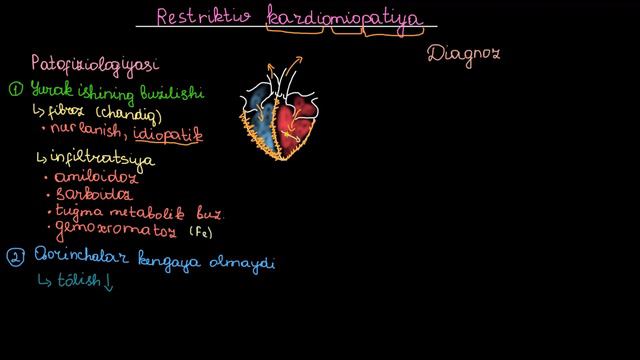 Restriktiv kardiomiopatiya
Diagnoz
Patofiziologiyasi
① Yurak ishining buzilishi
↳ fibroz (chandiq)
• nurlanish, idiopatik
↳ infiltratsiya
• amiloidoz
• sarkoidoz
• tuğma metabolik buz.
• gemoxromatoz (Fe)
② Qorinchalar kengaya olmaydi
↳ tólish ↓